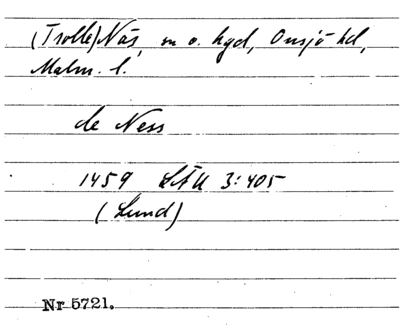 (Trolle)Näs, m o. hgd, Onsjö hd,
Malm. l.
de Ness
1459 LÄU 3:405
(Lund)
Nr 5721.